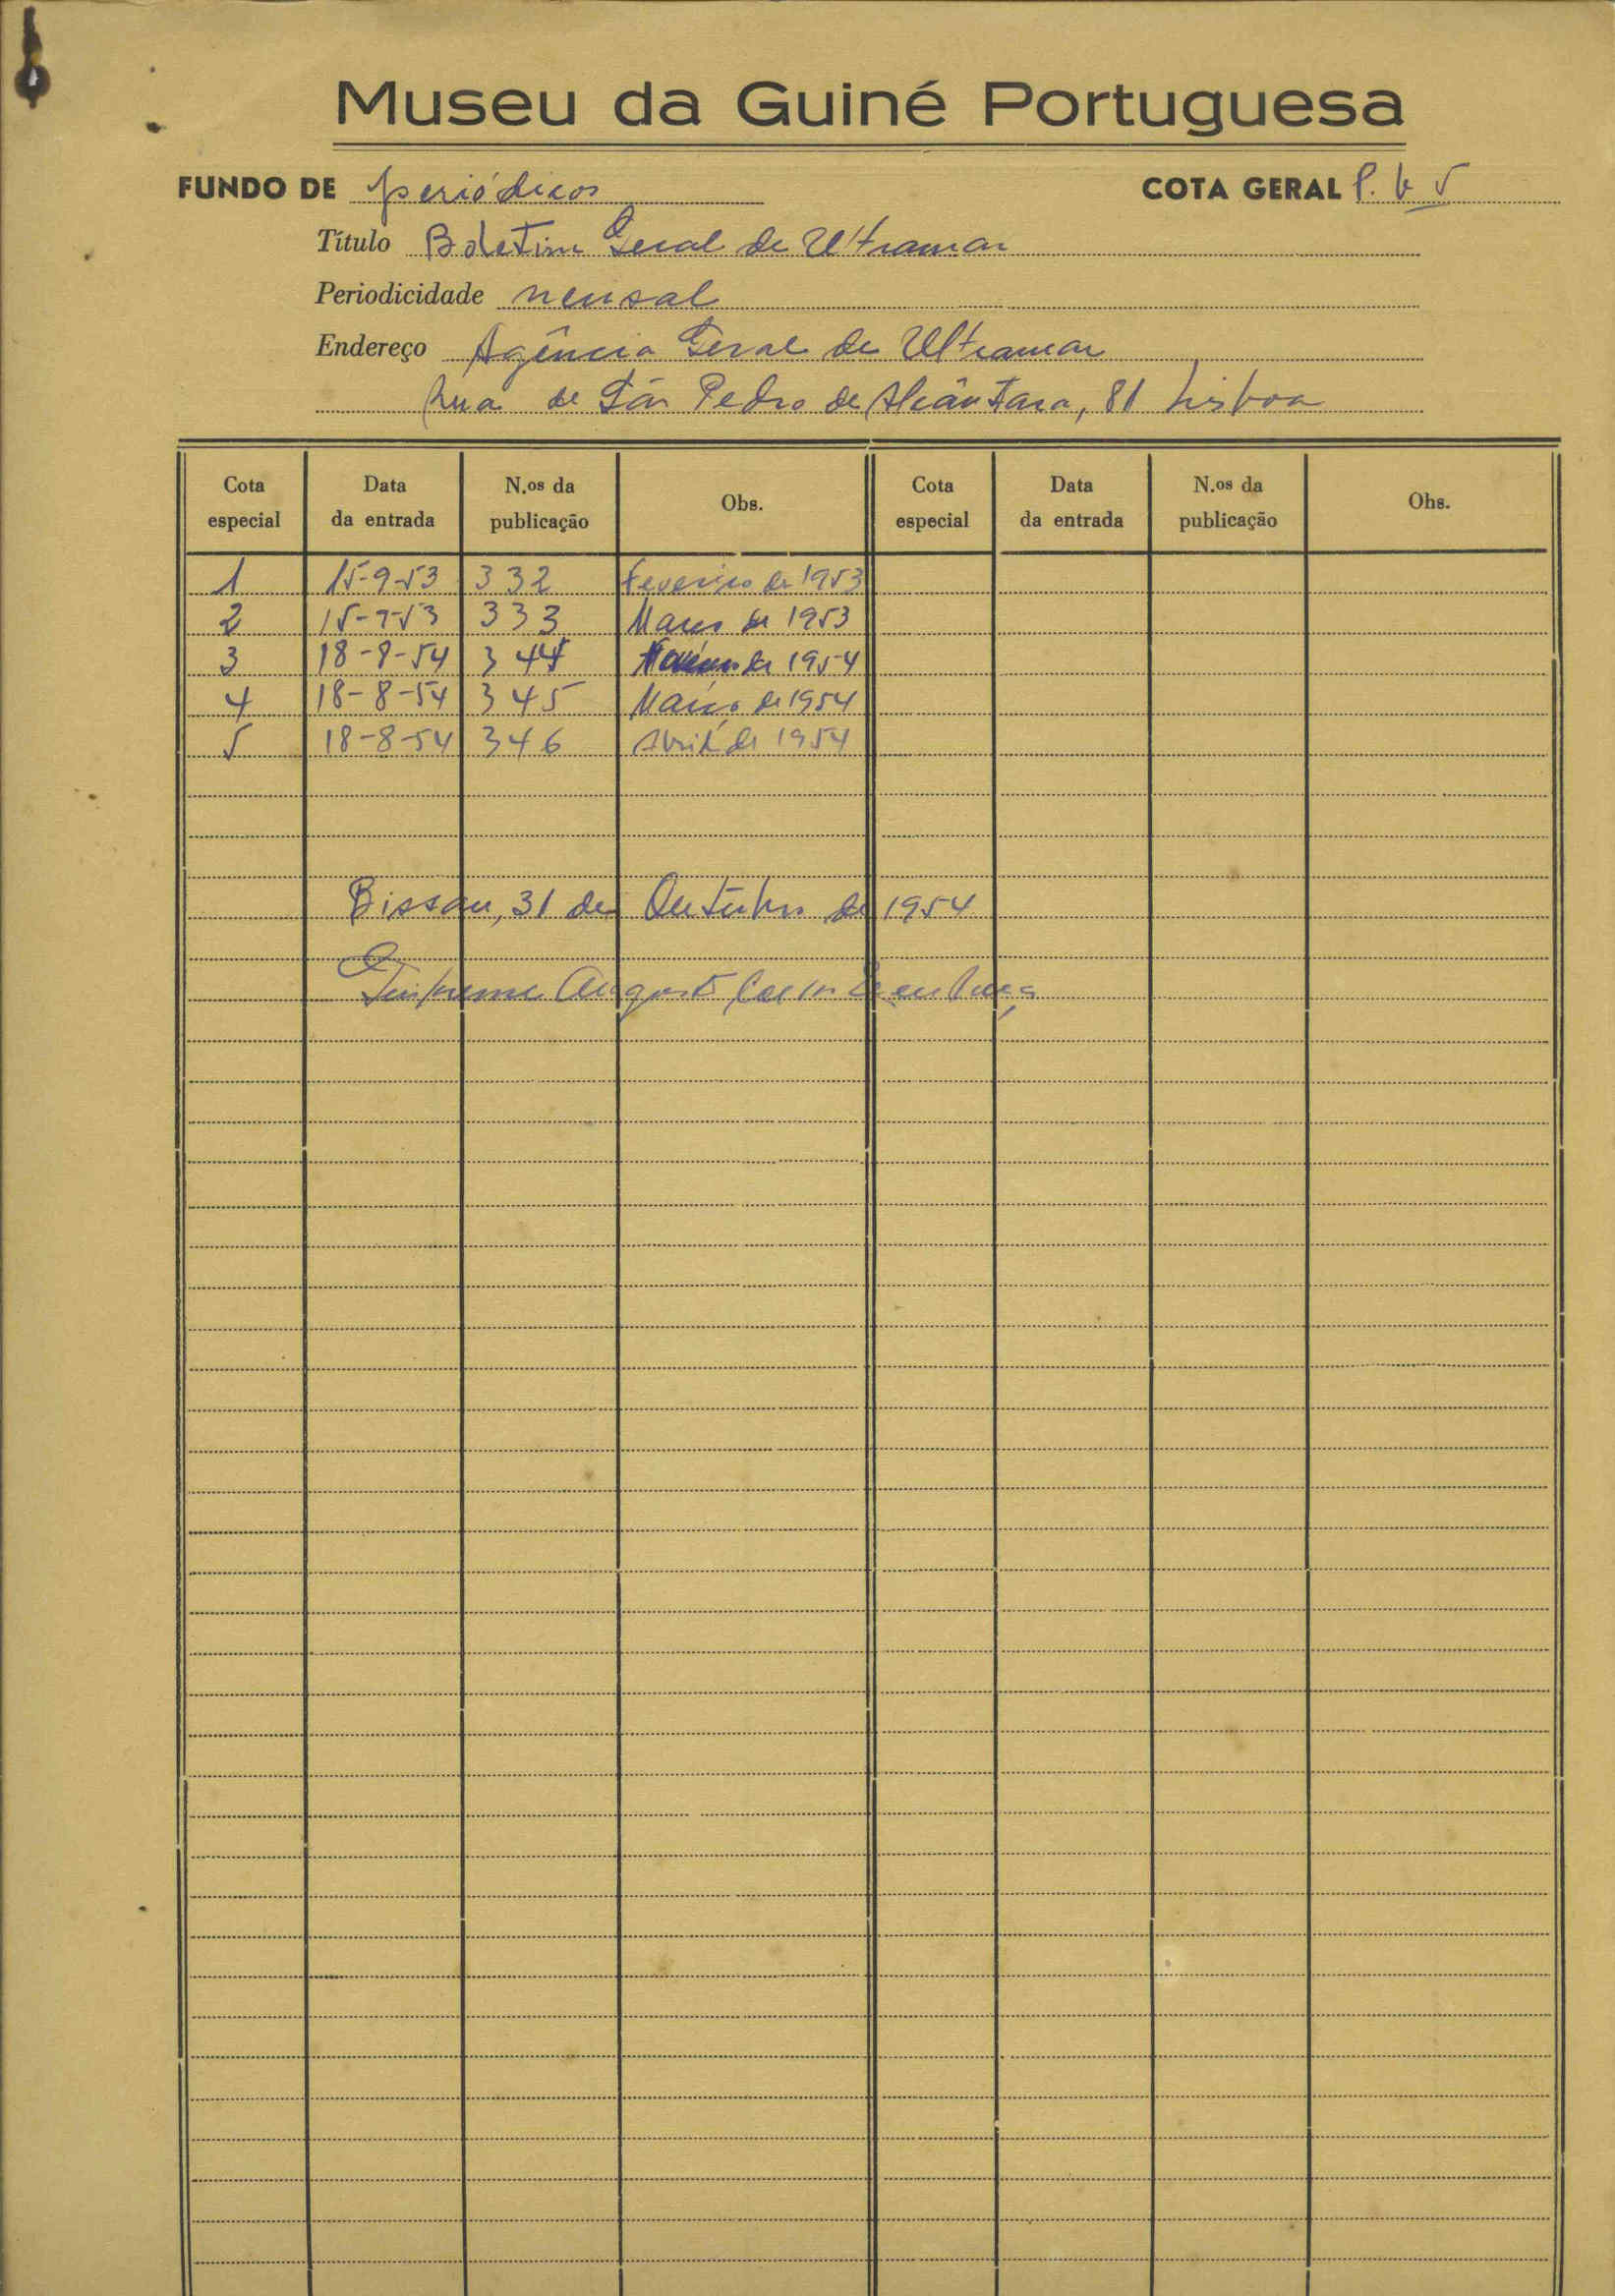 Museu da Guiné Portuguesa
FUNDO DE periódicos COTA GERAL P. b 5
Título Boletim Geral do Ultramar
Periodicidade mensal
Endereço Agência Geral do Ultramar
Rua de São Pedro de Alcântara, 81 Lisboa
Cota especial Data da entrada N.os da publicação Obs. Cota especial Data da entrada N.os da publicação Obs.
1 15-9-53 332 Fevereiro de 1953
2 15-9-53 333 Março de 1953
3 18-8-54 344 1954
4 18-8-54 345 Março de 1954
5 18-8-54 346 Abril de 1954
Bissau, 31 de Outubro de 1954
Augusto